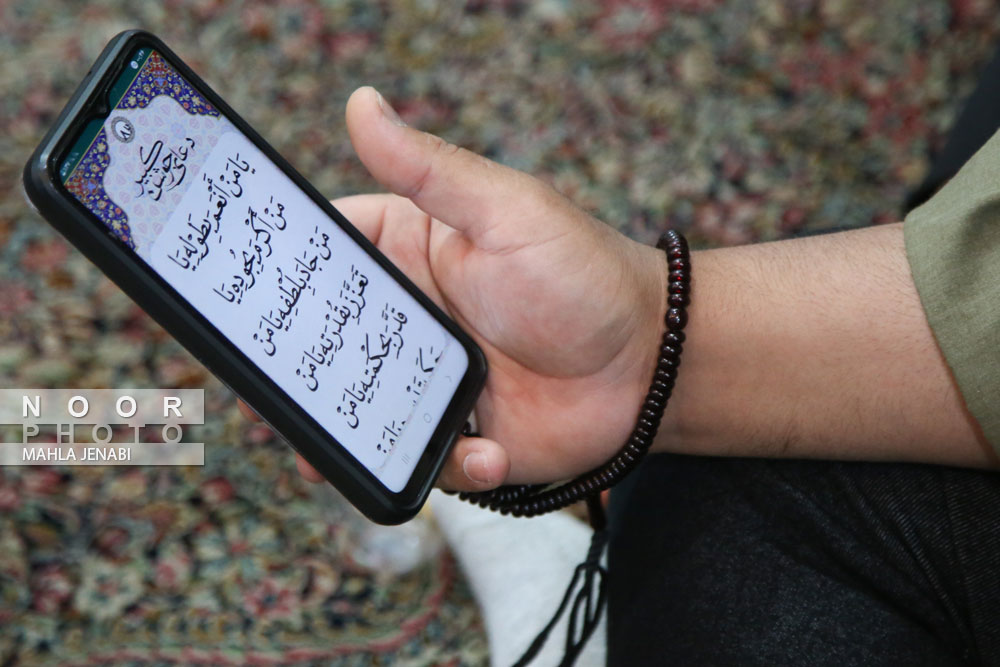 دعای جوشن کبیر
یَا مَنْ أَنْعَمَ بِطَوْلِهِ یَا
مَنْ أَکْرَمَ بِجُودِهِ یَا
مَنْ جَادَ بِلُطْفِهِ یَا مَنْ
تَعَزَّزَ بِقُدْرَتِهِ یَا مَنْ
قَدَّرَ بِحِکْمَتِهِ یَا مَنْ
NOOR
PHOTO
MAHLA JENABI